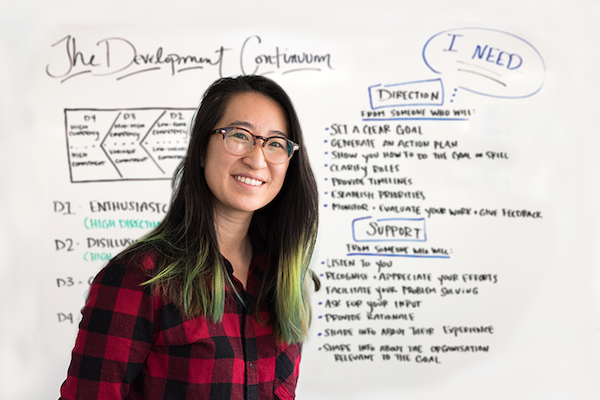 The Development Continuum
I NEED...
D4 D3 D2
HIGH COMPETENCY
HIGH COMMITMENT
MOD-HIGH COMPETENCY
VARIABLE COMMITMENT
COMPETENCY
COMMITMENT
D1 - ENTHUSIASTIC
(HIGH DIRECTI
D2 - DISILLUS
(HIGH
D3 -
D4
DIRECTION
FROM SOMEONE WHO WILL:
• SET A CLEAR GOAL
• GENERATE AN ACTION PLAN
• SHOW YOU HOW TO DO THE GOAL OR SKILL
• CLARIFY ROLES
• PROVIDE TIMELINES
• ESTABLISH PRIORITIES
• MONITOR + EVALUATE YOUR WORK + GIVE FEEDBACK
SUPPORT
FROM SOMEONE WHO WILL:
• LISTEN TO YOU
• RECOGNISE + APPRECIATE YOUR EFFORTS
• FACILITATE YOUR PROBLEM SOLVING
• ASK FOR YOUR INPUT
• PROVIDE RATIONALE
• SHARE INFO ABOUT THEIR EXPERIENCE
• SHARE INFO ABOUT THE ORGANISATION
RELEVANT TO THE GOAL